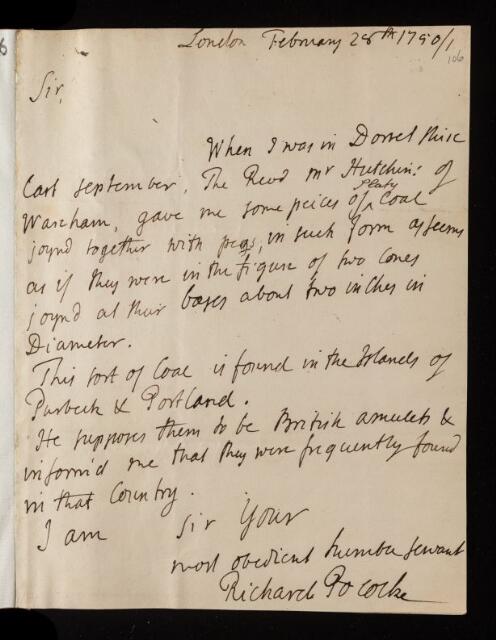 London February 28th 1750/1
106
Sir,
When I was in Dorset Shire
Last september, The Revd mr Hutchins of
Wareham, gave me some peices of Slaty Coal
joynd together with pegs, in such form as seems
as if they were in the Figure of two Cones
joynd at their bases about two inches in
Diameter.
This sort of Coal is found in the Islands of
Purbeck & Portland.
He supposes them to be British amulets &
inform'd me that they were frequently found
in that Country.
I am Sir Your
most obedient humble servant
Richard Pococke